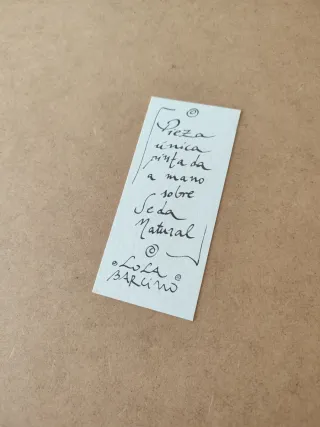 Pieza
única
pintada
a mano
sobre
Seda
Natural
LOLA
BARCINO